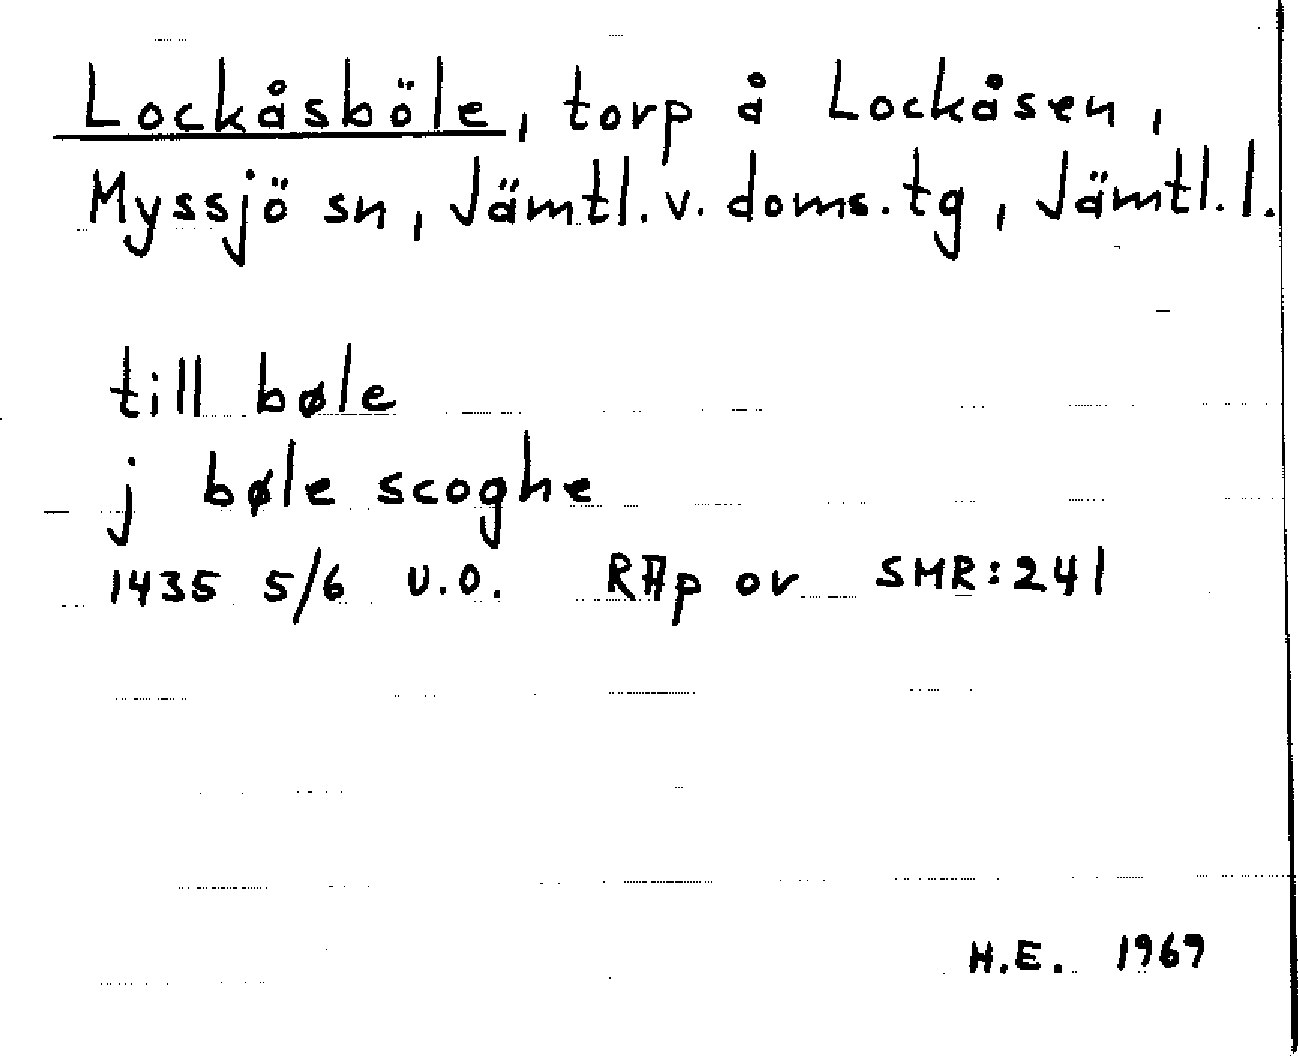 Lockåsböle, torp å Lockåsen,
Myssjö sn, Jämtl. v. doms. tg, Jämtl. l.
till bøle
j bøle scoghe
1435 5/6 U.O. RAp or SMR:241
H.E. 1969